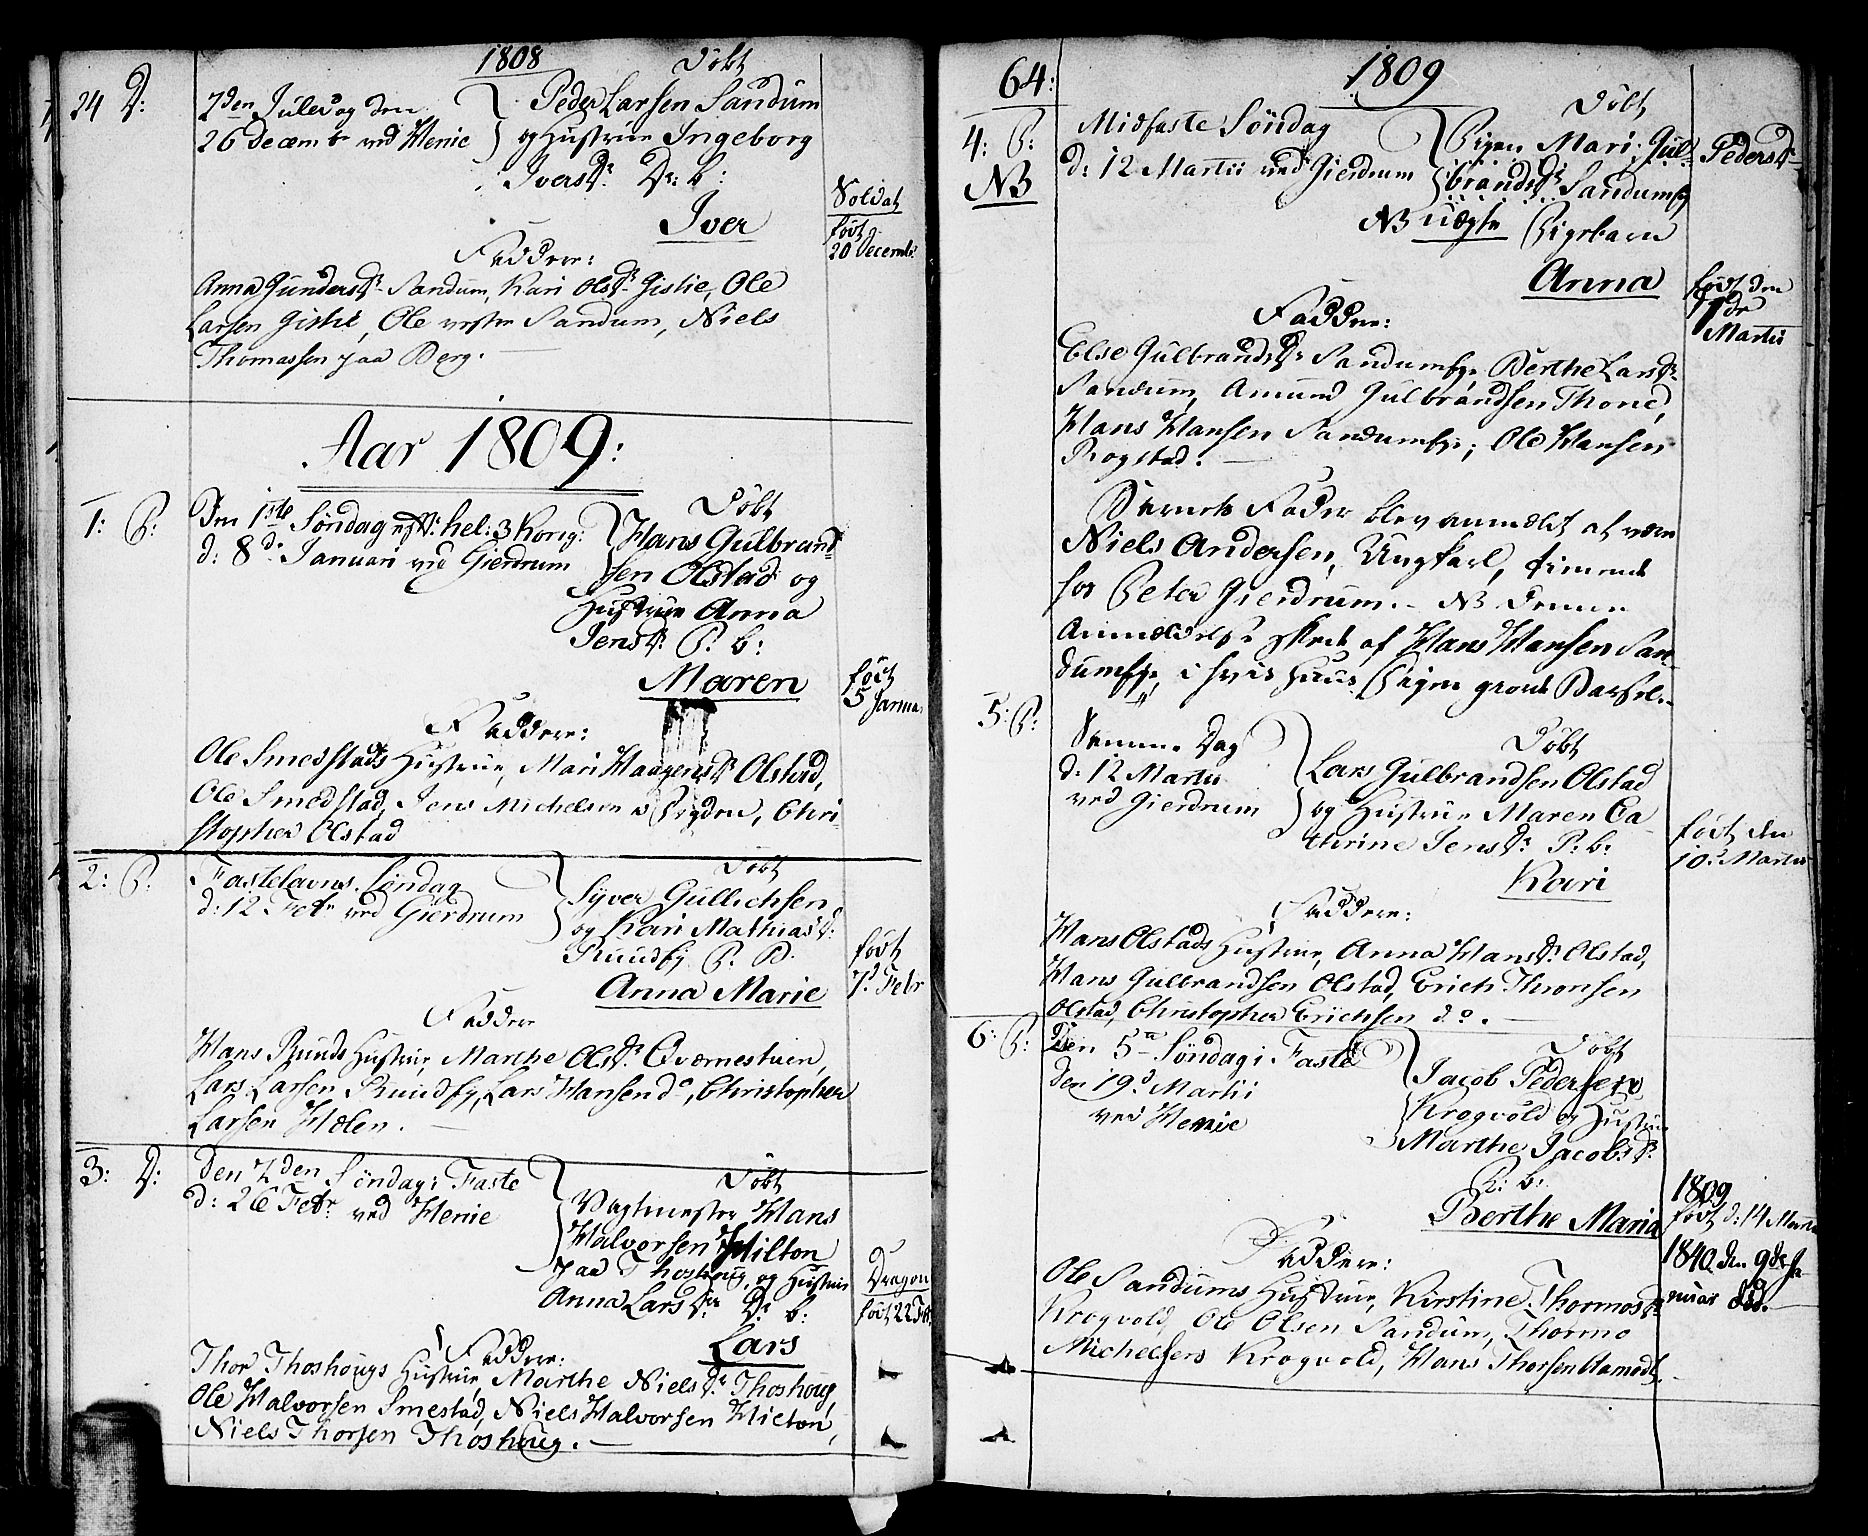 1808
Döbt
24 D:
2den Juledag den
26 Decembr ved Henie
Peder Larsen Sandum
og Hustrue Ingeborg
Iversdr. Dr: b:
Iver
Soldat
født
20 Decemb:
Faddere:
Anna Gundersdr. Sandum, Kari Olsdr. Gislie, Ole
Larsen Gislie, Ole nestre Sandum, Niels
Thomassen paa Berg. —
Aar 1809:
1: P:
Den 1ste Söndag eft: hel: 3 Kong:
d: 8de Januari ved Gierdrum
Döbt
Hans Gulbrand-
sen Olstad og
Hustrue Anna
Jensdr. P. b:
Maren
født
5 Janua:
Faddere:
Ole Smedstads Hustrue, Mari Haagensdr. Olstad,
Ole Smedstad, Jens Michelsen, Chri-
stopher Olstad
2: P:
Fastelavns Söndag
d: 12 Febr ved Gierdrum
Döbt
Syver Gullichsen
og Kari Mathiasdr:
Ruudsy P. b.
Anna Marie
født
7d. Febr
Faddere
Hans Ruuds Hustrue, Marthe Olsdr. Qværnestuen,
Lars Larsen Ruudsy, Lars Hansen do, Christopher
Larsen Hælen. —
3: D:
Den 2den Söndag i Faste
d: 26 Febr. ved Henie
Döbt
Vagtmester Hans
Halvorsen Hilton
paa Thoshoug, og Hustrue
Anna Larsdr Dr b:
Lars
Dragon
født 22 Feb.
Faddere:
Thor Thoshougs Hustrue, Marthe Nielsdr Thoshoug,
Ole Halvorsen Smestad, Niels Halvorsen Hilton,
Niels Thorsen Thoshoug. —
64:
1809
4: P:
NB
Midfaste Söndag
d: 12 Martii ved Gierdrum
Döbt
Pigen Mari Gul-
brandsdr Sandumsy
Pedersdr
NB uægte Pigebarn
Anna
født den
7de
Martii
Faddere:
Else Gulbrandsdr Sandumsy, Berthe Larsdr.
Sandum, Amund Gulbrandsen Thoned,
Hans Hansen Sandumsy; Ole Hansen
Rogstad. —
Barnets Fader blev anmeldt at være
Niels Andersen, Ungkarl, tienende
hos Peter Gierdrum. – NB denne
Anmeldelse skeed af Hans Hansen San-
dumsy, i hvis Huus Pigen giorde Barsel.
5: P:
Samme Dag
d: 12 Martii
ved Gierdrum
Döbt
Lars Gulbrandsen Olstad
og Hustrue Maren Ca-
thrine Jensdr P: b:
Kari
født den
10d Martii
Faddere:
Hans Olstads Hustrue, Anna Hansdr Olstad,
Hans Gulbrandsen Olstad, Erich Thronsen
Olstad, Christopher Erichsen do. —
6: P:
Den 5te Söndag i Faste
den 19d Martii
ved Henie
Döbt
Jacob Pedersen
Krogvold og Hustrue
Marthe Jacobsdr.
P: b:
Berthe Maria
1809
født d: 14 Martii
1840 den 9de Ja-
nuar död.
Faddere:
Ole Sandums Hustrue, Kirstine Thormosdr
Krogvold, Ole Olsen Sandum, Thormo
Michelsen Krogvold, Hans Thorsen Ramedt. –